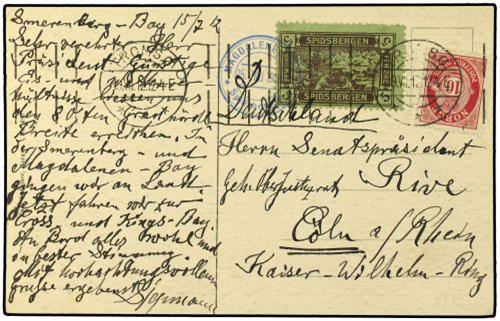 Smerenberg - Bay 15/7 12
Sehr verehrter Herr
Präsident Günstige
Eis- und
liessen uns
den 80ten Grad nördl
Breite erreichen. In
der Smerenberg - und
Magdalenen - Bay
gingen wir an Land.
Jetzt fahren wir zur
Cross und Kings-Bay.
An Bord alles wohl und
in bester Stimmung.
Mit hochachtungsvollem
grusse ergebenst
MAGDALENE
SPIDSBERGEN
5
5
SPIDSBERGEN
NORGE
10
Deutschland
Herrn Senatspräsident
Geh. Oberjustizrat Rive
Cöln a/Rhein
Kaiser-Wilhelm-Ring